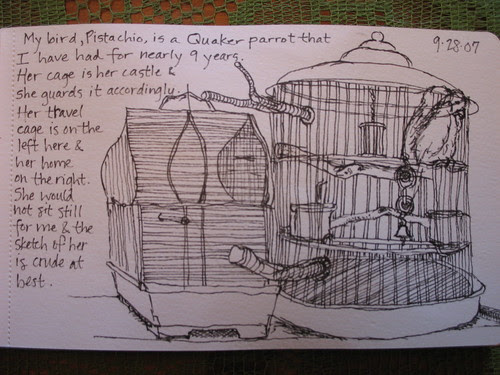 My bird, Pistachio, is a Quaker parrot that
9-28-07
I have had for nearly 9 years.
Her cage is her castle &
she guards it accordingly.
Her travel
cage is on the
left here &
her home
on the right.
She would
not sit still
for me & the
sketch of her
is crude at
best.